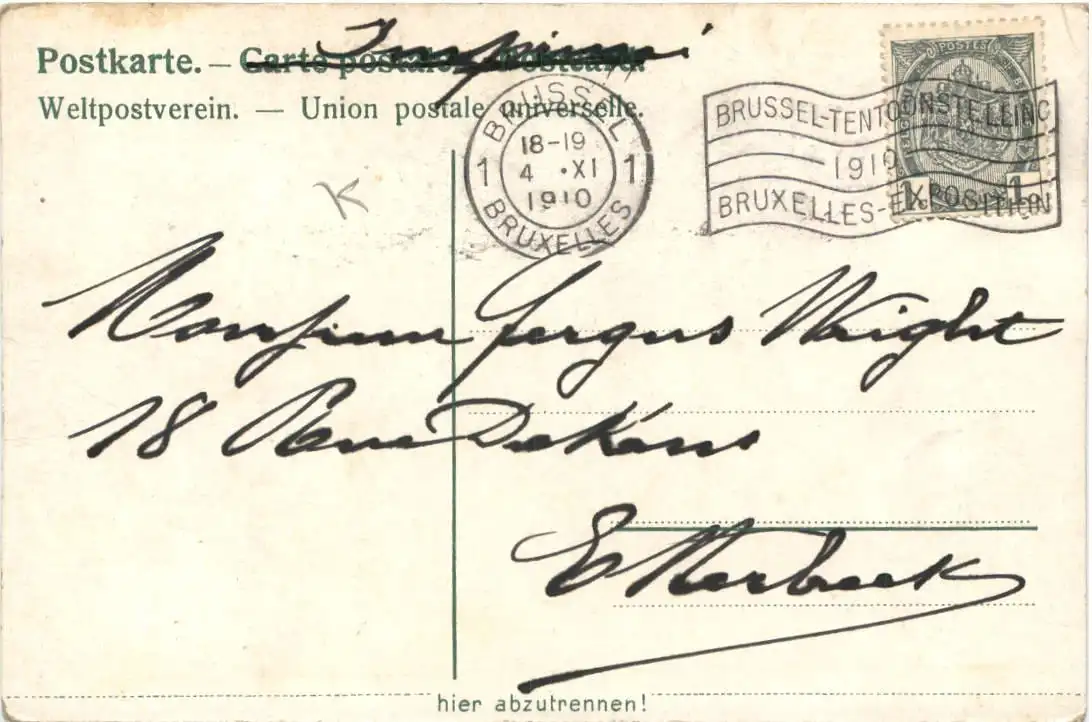 Imprimé
Postkarte. – Carte postale. – Postcard.
Weltpostverein. — Union postale universelle.
BRUSSEL
1 18-19 1
4 · XI
1910
BRUXELLES
POSTES
BRUSSEL-TENTOONSTELLING
1910
BRUXELLES-EXPOSITION
1 1
K
Monsieur Fergus Wright
18 Rue Dekens
Etterbeek
hier abzutrennen!